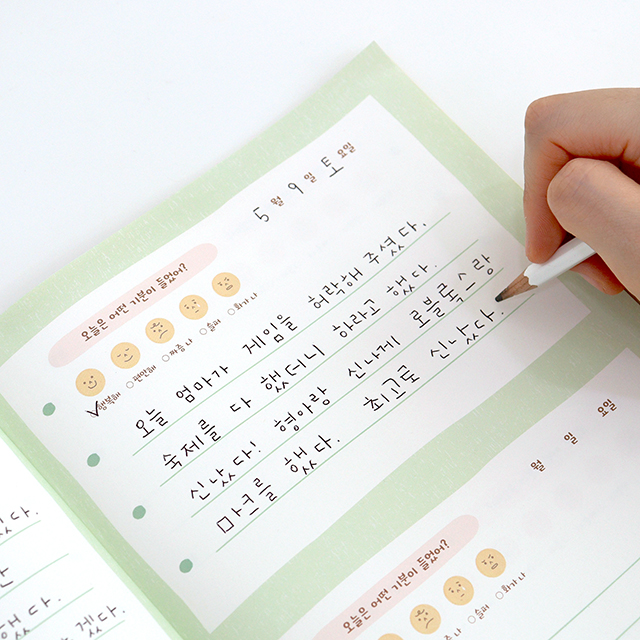 5 월 9 일 토 요일
오늘은 어떤 기분이 들었어?
행복해 편안해 짜증 나 슬퍼 화가 나
오늘 엄마가 게임을 허락해 주셨다.
숙제를 다 했더니 하라고 했다.
신났다! 형아랑 신나게 로블록스랑
마크를 했다. 최고로 신났다.
월 일 요일
오늘은 어떤 기분이 들었어?
슬퍼 화가 나